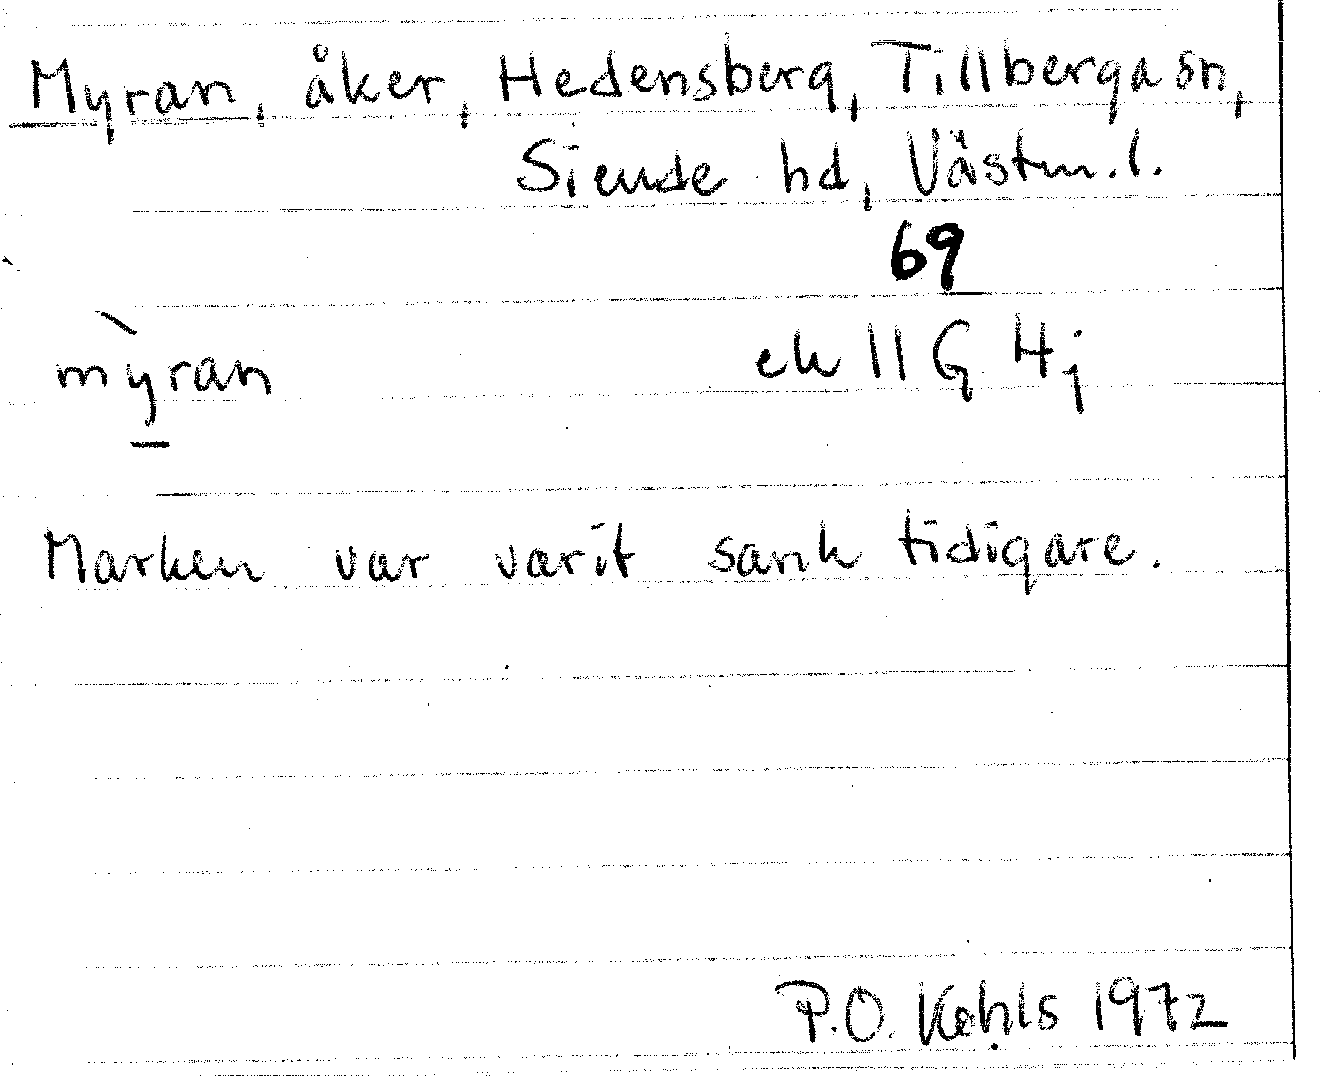 Myran, åker, Hedensberg, Tillberga sn,
Siende hd, Västm. l.
69
mỳran ek 11 G 4j
Marken var varit sank tidigare.
P.O. Kohls 1972